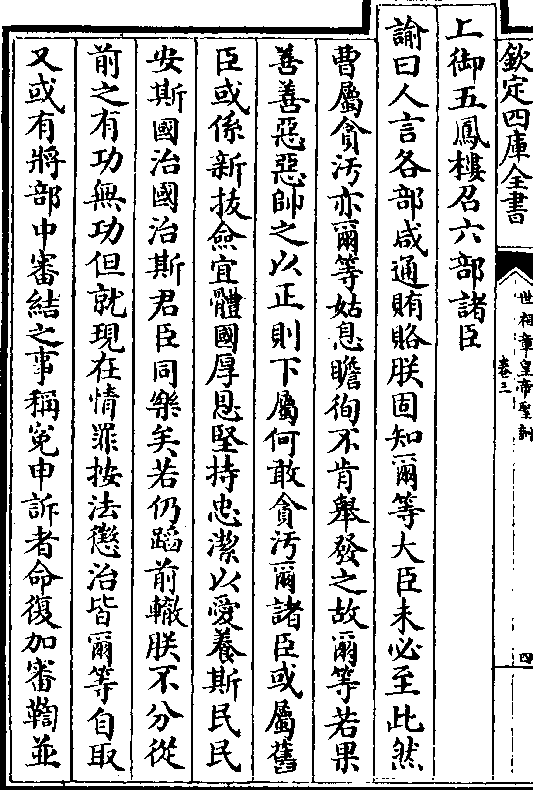 欽定四庫全書
世祖章皇帝聖訓
卷三
四
上御五鳳樓召六部諸臣
諭曰人言各部咸通賄賂朕固知爾等大臣未必至此然
曹屬貪汚亦爾等姑息瞻徇不肯舉發之故爾等若果
善善惡惡帥之以正則下屬何敢貪汚爾諸臣或屬舊
臣或係新拔僉宜體國厚恩堅持忠潔以愛養斯民民
安斯國治國治斯君臣同樂矣若仍蹈前轍朕不分從
前之有功無功但就現在情罪按法懲治皆爾等自取
又或有將部中審結之事稱寃申訴者命復加審鞫並